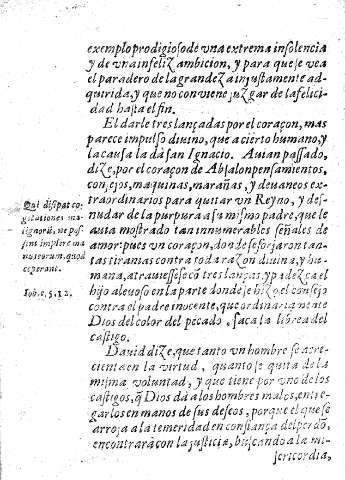 exemplo prodigioso de vna extrema insolencia
y de vna infeliz ambicion, y para que se vea
el paradero de la grandeza injustamente ad-
quirida, y que no conviene juzgar de la felici-
dad hasta el fin.
El darle tres lançadas por el coraçon, mas
parece impulso divino, que acierto humano, y
la causa la dà san Ignacio. Auian passado,
dize, por el coraçon de Absalon pensamientos,
consejos, maquinas, marañas, y devaneos ex-
traordinarios para quitar vn Reyno, y des-
nudar de la purpura a su mismo padre, que le
auia mostrado tan innumerables señales de
amor: pues vn coraçon, donde se forjaron tan-
tas tiranias contra toda razon divina, y hu-
mana, atrauiessese cō tres lanças, y padezca el
hijo alevoso en la parte donde se hizo el consejo
contra el padre inocente, que ordinariamente
Dios del color del pecado, saca la librea del
castigo.
Qui disipat co-
gitationes ma-
lignorū, ne pos-
sint implere ma
nus eorum, quod
cœperant.
Iob. c. 5. 12.
Dauid dize, que tanto vn hombre se acre-
cienta en la virtud, quanto se quita de la
misma voluntad, y que tiene por vno de los
castigos, q̄ Dios dà a los hombres malos, entre-
garlos en manos de sus deseos, porque el que se
arroja a la temeridad en confiança del perdō,
encontrarà con la justicia, buscando a la mi-
sericordia,